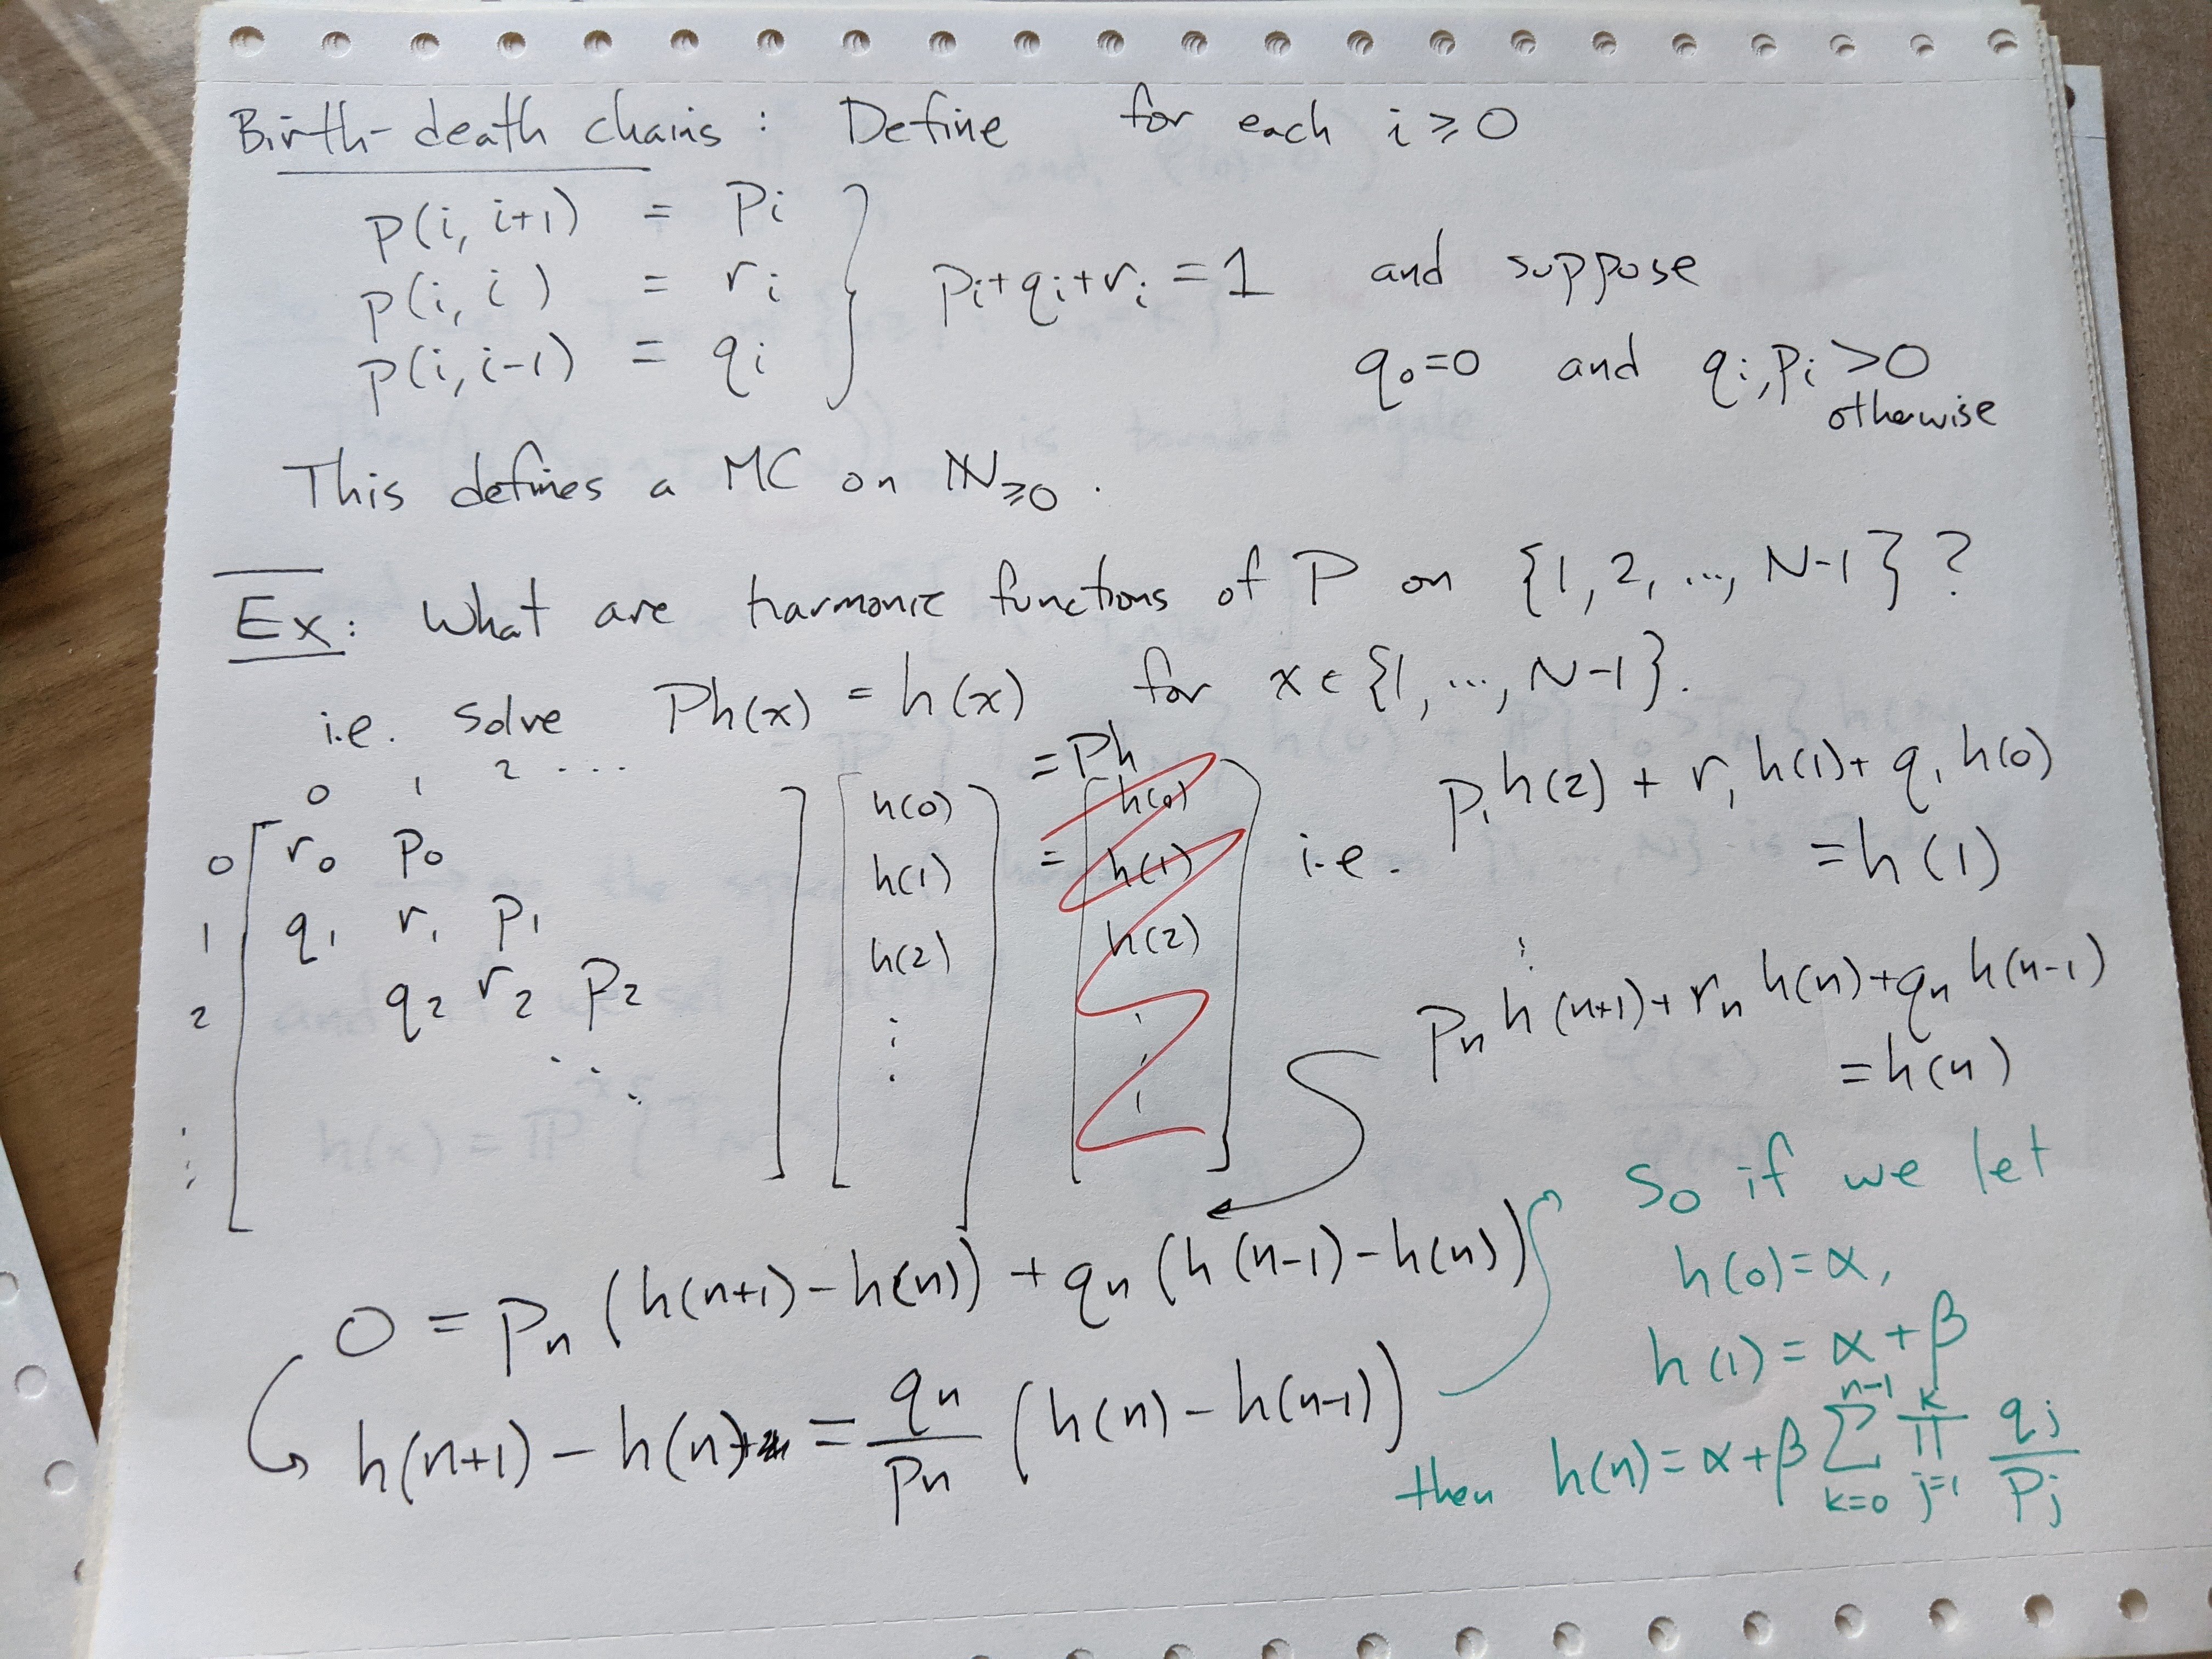 Birth-death chains: Define for each i ≥ 0
p(i, i+1) = pi
p(i, i) = ri
p(i, i-1) = qi
} pi+qi+ri = 1 and suppose
q0=0 and qi, pi >0
otherwise
This defines a MC on ℕ≥0.
Ex: What are harmonic functions of P on {1, 2, ..., N-1}?
i.e. solve Ph(x) = h(x) for x ∈ {1, ..., N-1}.
0 1 2 ...
0 [ r0 p0
1 q1 r1 p1
2 q2 r2 p2
⋮ ⋱ ]
[ h(0)
h(1)
h(2)
⋮ ]
= Ph
= [ h(0)
h(1)
h(2)
⋮ ]
i.e. p1 h(2) + r1 h(1) + q1 h(0)
= h(1)
⋮
pn h(n+1) + rn h(n) + qn h(n-1)
= h(n)
0 = pn (h(n+1) - h(n)) + qn (h(n-1) - h(n))
h(n+1) - h(n) = qn/pn (h(n) - h(n-1))
So if we let
h(0) = α,
h(1) = α + β
then h(n) = α + β ∑_{k=0}^{n-1} ∏_{j=1}^{k} qj/pj